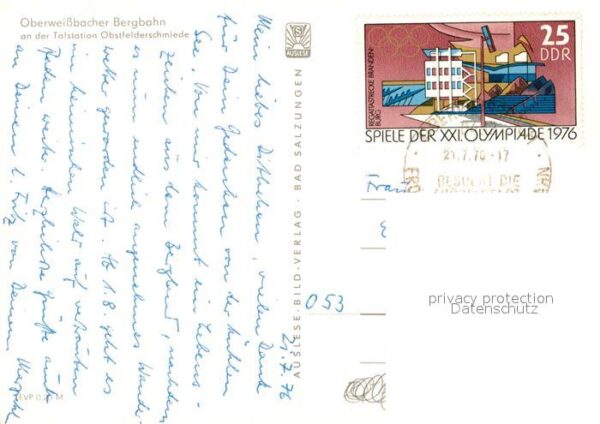 Oberweißbacher Bergbahn
an der Talstation Obstfelderschmiede
21.7.76
Mein liebes , vielen Dank
für Dein Gedenken von der kühlen
See. Von mir kommt ein Lebens-
zeichen aus dem Bergland, nachdem
es nun endlich angenehmes Wander-
wetter geworden ist. Ab 1.8. geht es
im heimischen Wald auf vertrauten
Pfaden weiter. Herzlichste Grüße auch
an Deinen l. Fritz von Deinem
EVP 0,25 M
AUSLESE
AUSLESE-BILD-VERLAG · BAD SALZUNGEN
25
DDR
REGATTASTRECKE BRANDEN-
BURG
SPIELE DER XXI. OLYMPIADE 1976
21.7.76-17
BESUCHT DIE
053
privacy protection
Datenschutz